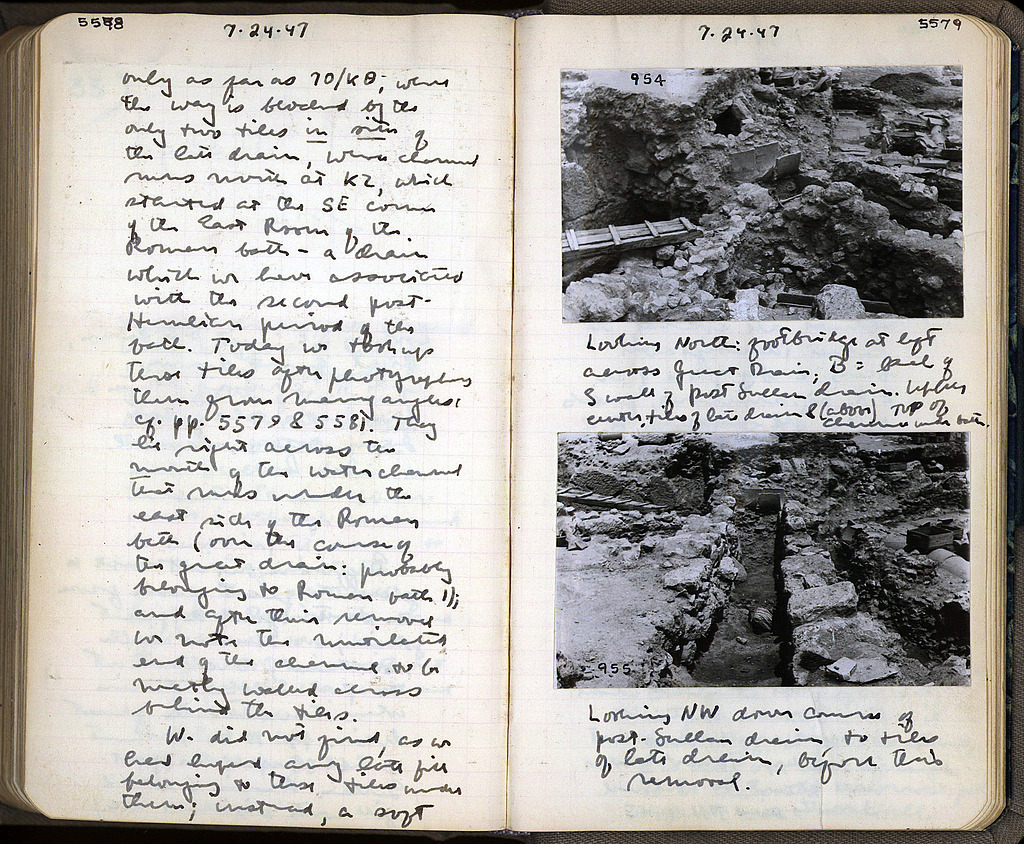 5578
7-24-47
only as far as 70/ΚΘ; where
the way is blocked by the
only two tiles in situ of
the late drain, whose channel
runs north at ΚΖ, which
started at the SE corner
of the East Room of the
Roman bath - a drain
which we have associated
with the second post-
Herulian period of the
bath. Today we took up
these tiles after photographing
them from many angles:
cf. pp. 5579 & 5581. They
lie right across the
mouth of the water channel
that runs under the
east side of the Roman
bath (over the course of
the great drain: probably
belonging to Roman bath I);
and after their removal
we note the mutilated
end of the channel to be
neatly walled across
behind the tiles.
We did not find, as we
had hoped any late fill
belonging to these tiles under
them; instead, a soft
5579
7-24-47
954
Looking North: footbridge at left
across Great Drain; B = back of
S wall of post Sullan drain. Upper
center, tiles of late drain & (above) top of
channel under bath.
955
Looking NW down course of
post-Sullan drain to tiles
of late drain, before their
removal.